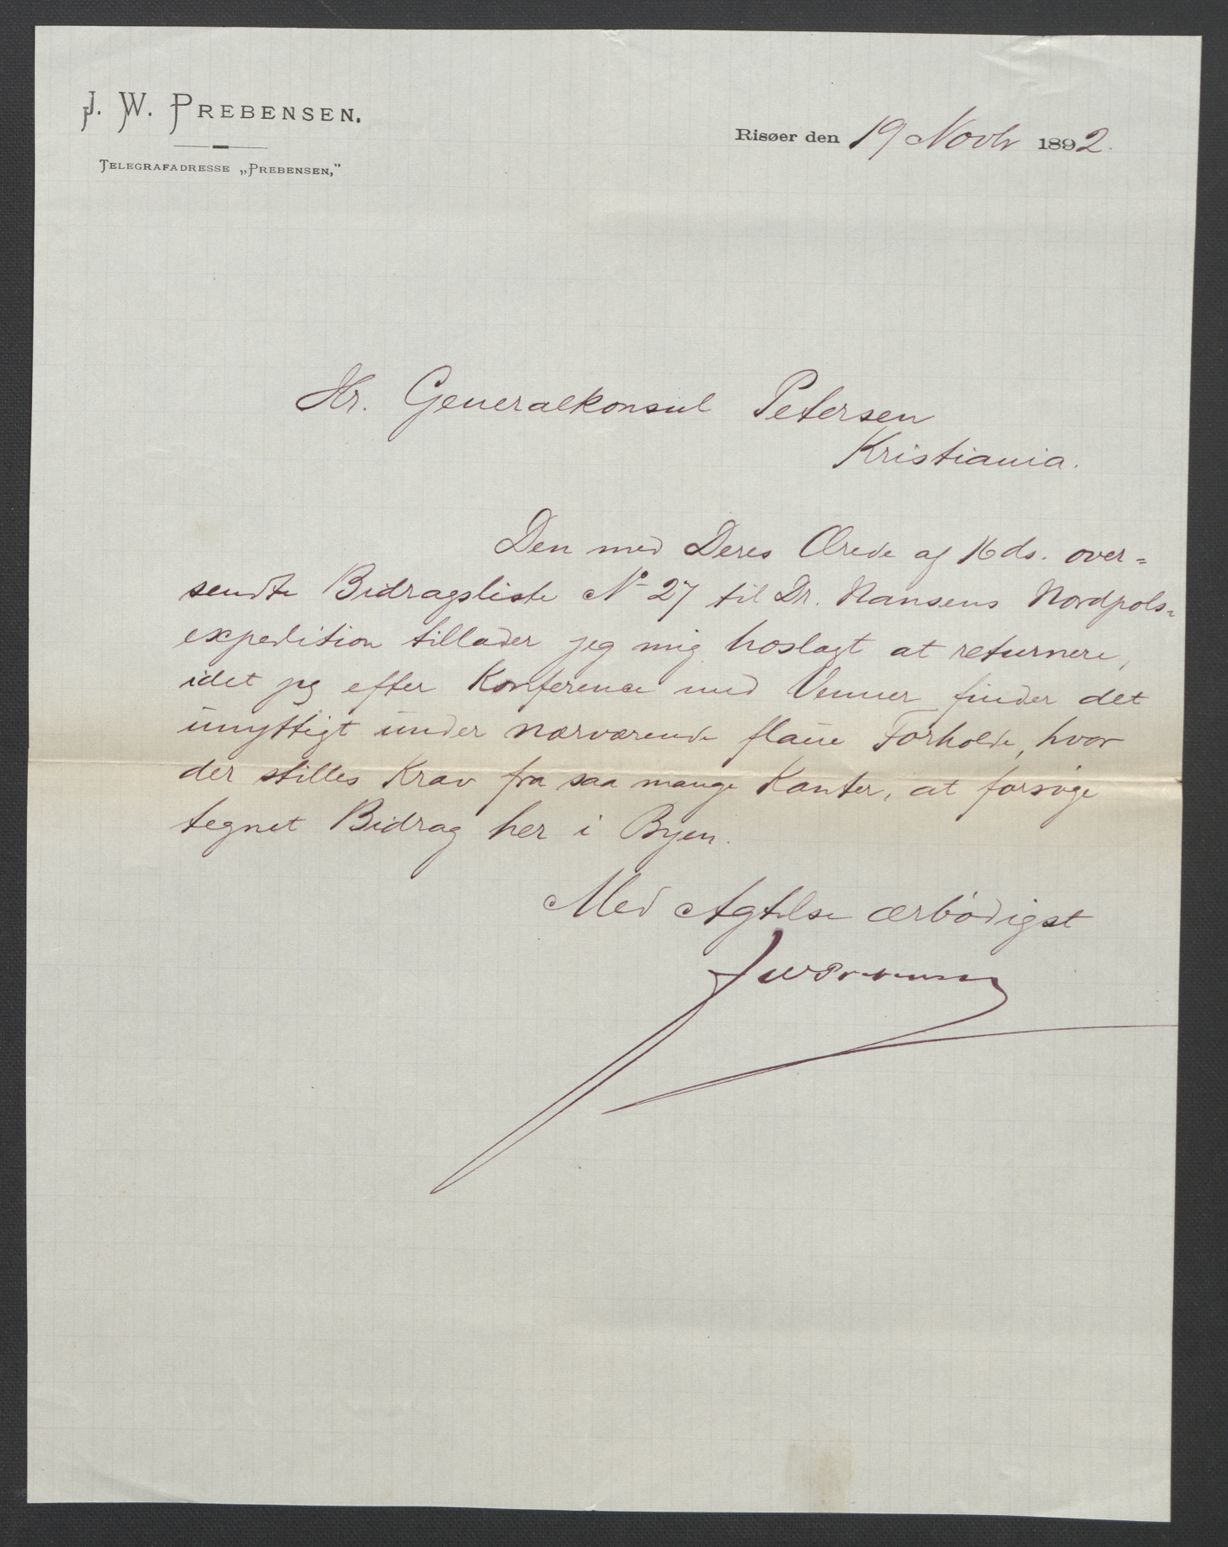 J. W. PREBENSEN.
TELEGRAFADRESSE „PREBENSEN,"
Risøer den 19 Novbr 1892.
Hr. Generalkonsul Petersen
Kristiania.
Den med Deres Ærede af 16 ds. over=
sendte Bidragsliste No 27 til Dr. Nansens Nordpols=
expedition tillader jeg mig hoslagt at returnere,
idet jeg efter Konference med Venner finder det
unyttigt under nærværende flaue Forholde, hvor
der stilles Krav fra saa mange Kanter, at forsøge
tegnet Bidrag her i Byen.
Med Agtelse ærbødigst
JWPrebensen